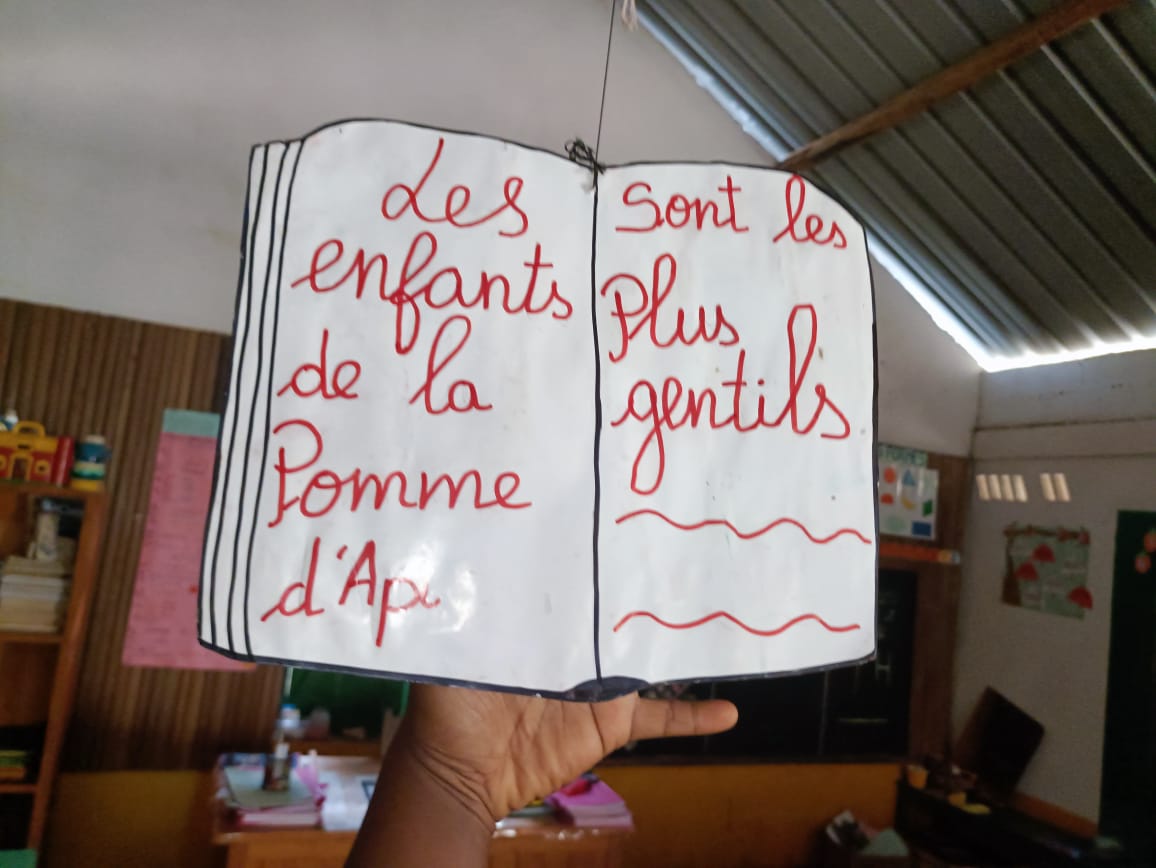 Les
enfants
de la
Pomme
d'Api
Sont les
Plus
gentils